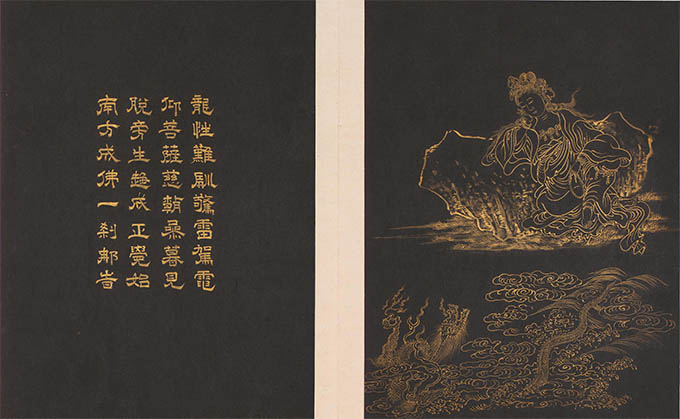 龍性難馴驚雷駕電
仰菩薩慈朝參暮見
脫旁生趣成正覺始
南方成佛一剎那